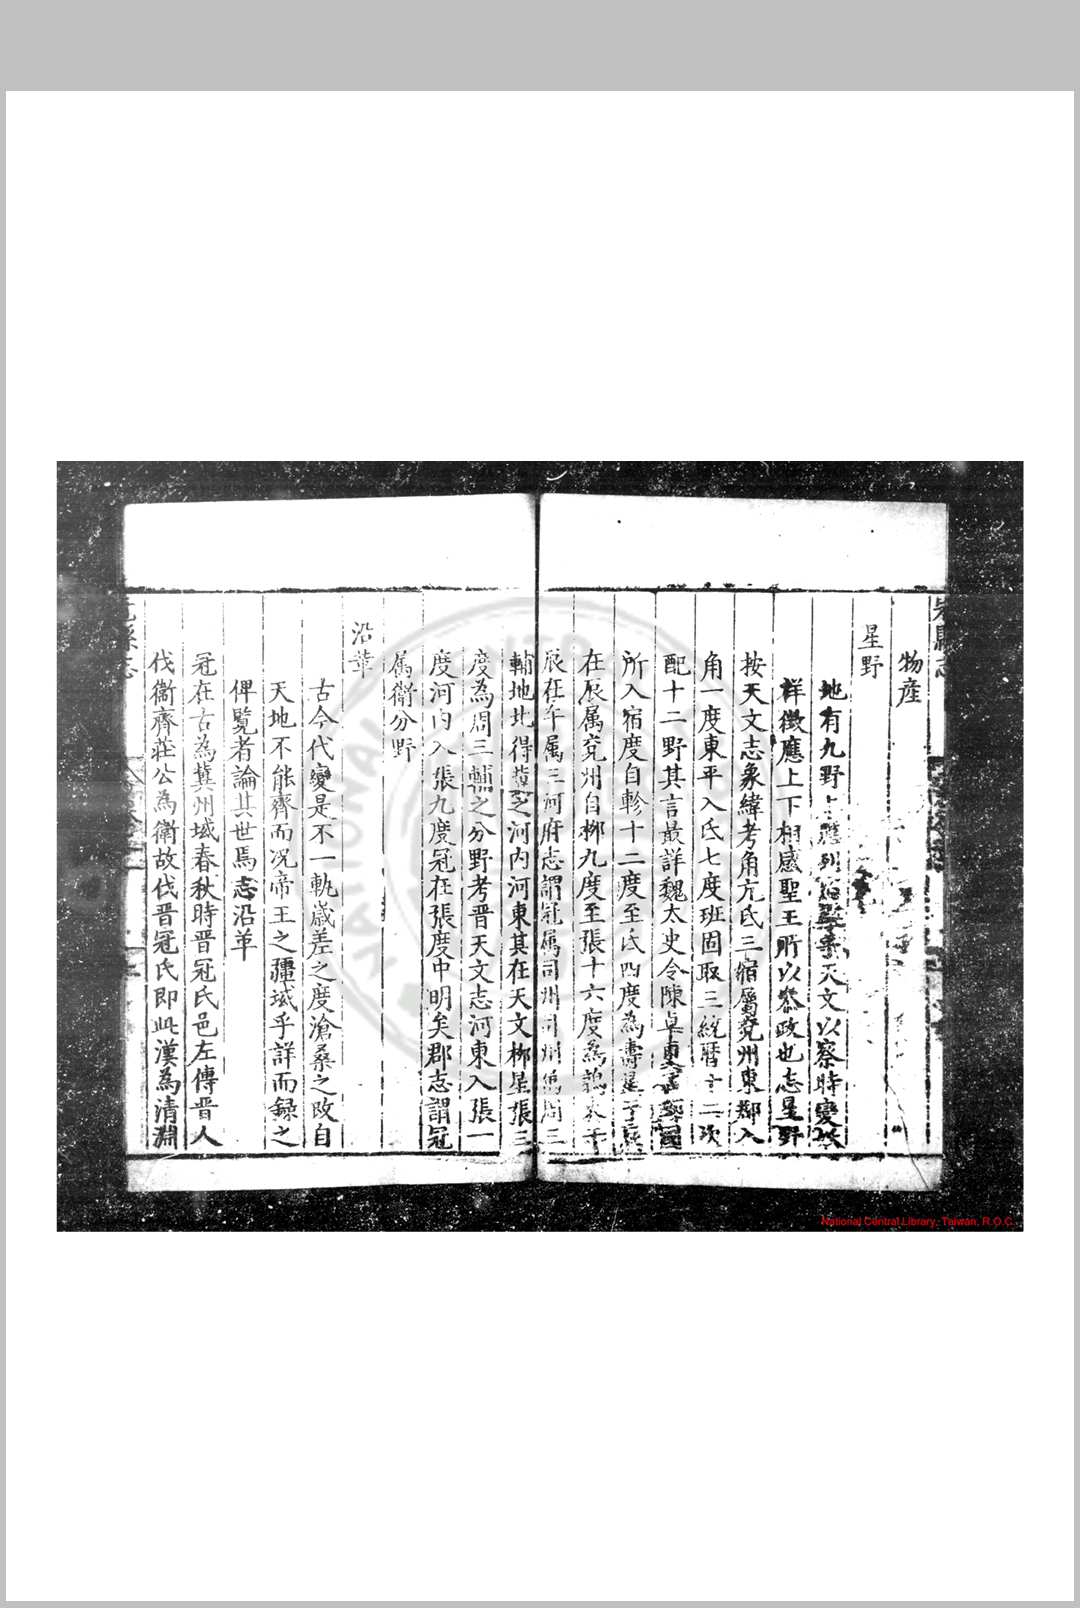 物產
星野
地有九野上應列宿聖人示天文以察時變災
祥徵應上下相感聖王所以恭政也志星野
按天文志象緯考角亢氐三宿屬兗州東鄰入
角一度東平入氐七度班固取三統曆十二次
配十二野其言最詳魏太史令陳卓更言郡國
所入宿度自軫十二度至氐四度為壽星于辰
在辰属兗州自柳九度至張十六度為鶉火于
辰在午属三河府志謂冠属司州司州為周三
輔地北得冀之河內河東其在天文柳星張三
度為周三輔之分野考晋天文志河東入張一
度河內入張九度冠在張度中明矣郡志謂冠
属衛分野
沿革
古今代變是不一軌歲差之度滄桑之改自
天地不能齊而況帝王之疆域乎詳而録之
俾覧者論其世焉志沿革
冠在古為冀州域春秋時晋冠氏邑左傳晋人
伐衞齊莊公為衛故伐晋冠氏即此漢為清淵
National Central Library, Taiwan, R.O.C.